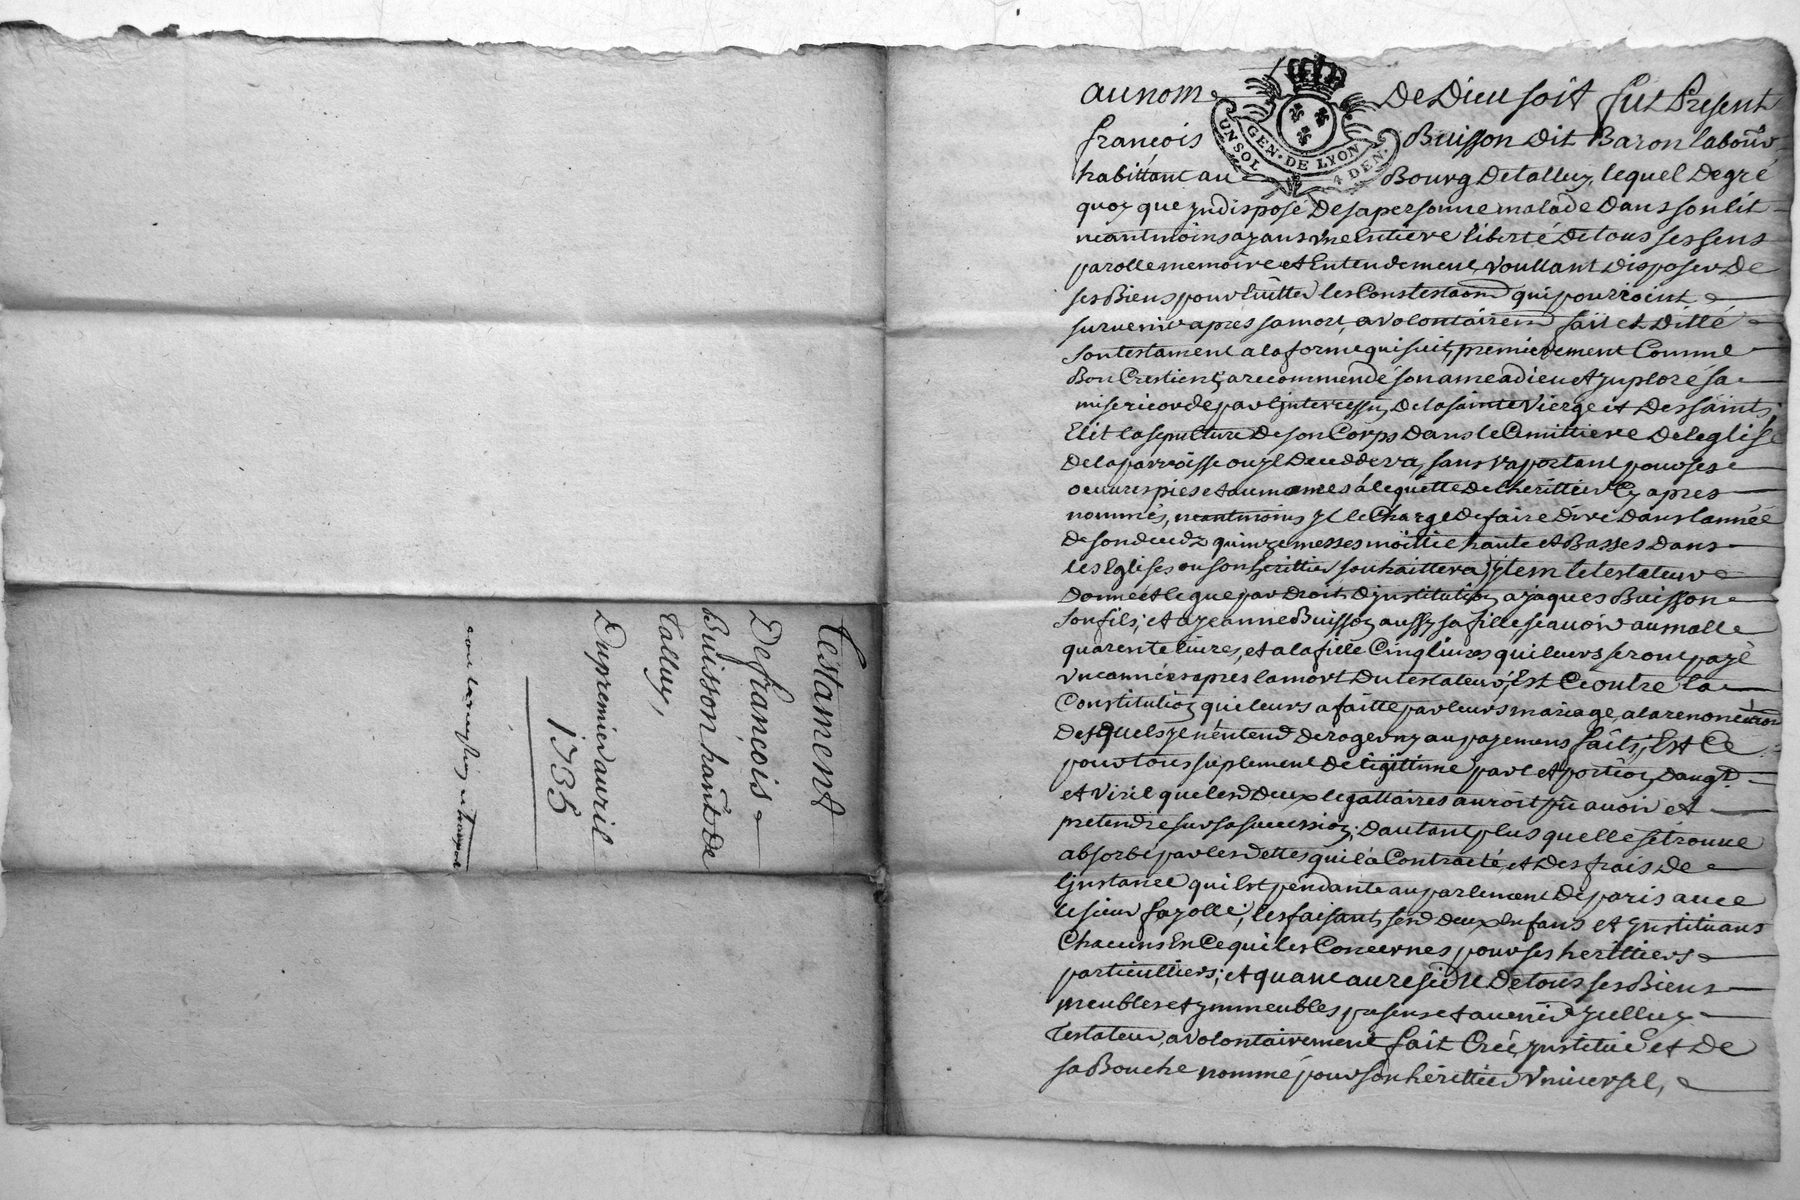 Testament
De françois
Buisson habt de
Talluy,
Du premier auril
1735
au nom De Dieu soit fut Present
UN SOL GEN · DE LYON 4 DEN ·
françois Buisson Dit Baron labour
habittant au Bourg De talluy, lequel De gré
quoy que yndisposé De sa personne malade Dans son lit
neantmoins ayans vne Entiere liberté De tous ses sens
parolle memoire et Entendement, voullant Disposer De
ses Biens pour Euitter les Constestaons qui pourroient
suruenir apres sa mort, a volontairemt fait et Ditté
son testament a la forme qui suit, premierement Comme
Bon Crestient, a recommendé son ame a dieu et ymploré sa
misericorde par l'yntercessõn De la sainte Vierge et Des saints,
Elit la sepulture De son Corps Dans le Cemittiere De leglise
De la parroisse ou yl Deceddera, sans raportant pour ses
oeuures pies et aumones a lequitte De l'herittier Cy apres
nommés, neantmoins yl le Charge De faire Dire Dans lannéé
De son decedz quinze messes moittié haute et Basses Dans
les Eglises ou son herittier souhaittera, ytem le testateur
Donne et legue par Droit D'ynstitution a jaques Buisson
son fils, et a jeanne Buisson aussy sa fille, scauoir au malle
quarente liures, et a la fille Cinq liures qui leurs seront payé
vne année apres la mort Du testateur, Est Ce outre la
Constitution qui leurs a faitte par leurs mariage, a la renonciaon
Desquels yl n'entend deroger ny au payemens faits, Est Ce
pour tous suplement De legittime part et portion, Daugt
et Viril que lesd Deux legattaires auroit pu auoir et
pretendre sur sa succession, Dautant plus quelle se trouue
absorbé par les Dettes qui l'a Contracté, et Des frais De
l'ynstance qui Est pendante au parlement De paris auec
le sieur fayolle, les faisant, sesd Deux Enfans et ynstituans
Chacuns En Ce qui les Concernes pour ses herittiers
particulliers, et quant au residu De tous ses Biens
meubles et ymmeubles presens et auenir ycelluy
Testateur, a volontairement fait Creé ynstitué et De
sa Bouche nommé pour son herittier Vniuersel,